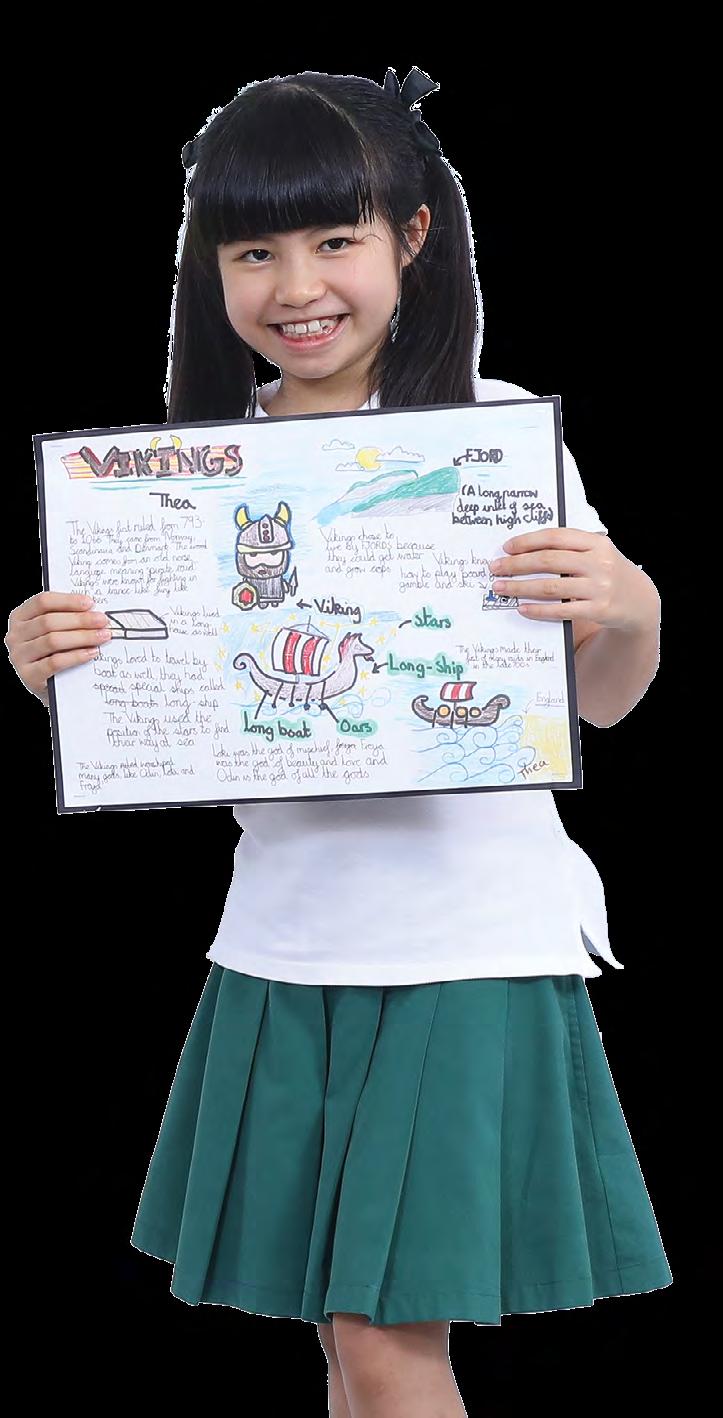 VIKINGS
Thea
The Vikings first ruled from 793-
to 1066. They came from Norway,
Scandinavia and Denmark. The word
Viking comes from an old norse
language meaning 'pirate raid'
Vikings were known for fighting in
such a trance like fury like
Vikings lived
in a Long-
house as well
Vikings loved to travel by
boat as well, they had
special ships called
long-boats long-ship
The Vikings used the
position of the stars to find
their way at sea
The Vikings
many gods, like Odin, Loki and
FJORD
(A long narrow
deep inlet of sea
between high cliffs)
Vikings chose to
live by FJORDS because
they could get water
and grow
Vikings knew
how to play board
gamble and ski
Viking
Stars
Long-Ship
Long boat
Oars
The Vikings made their
first of many raids in England
in the late 700s
England
Loki was the god of mischief,
was the god of beauty and love and
Odin is the god of all the gods
Thea